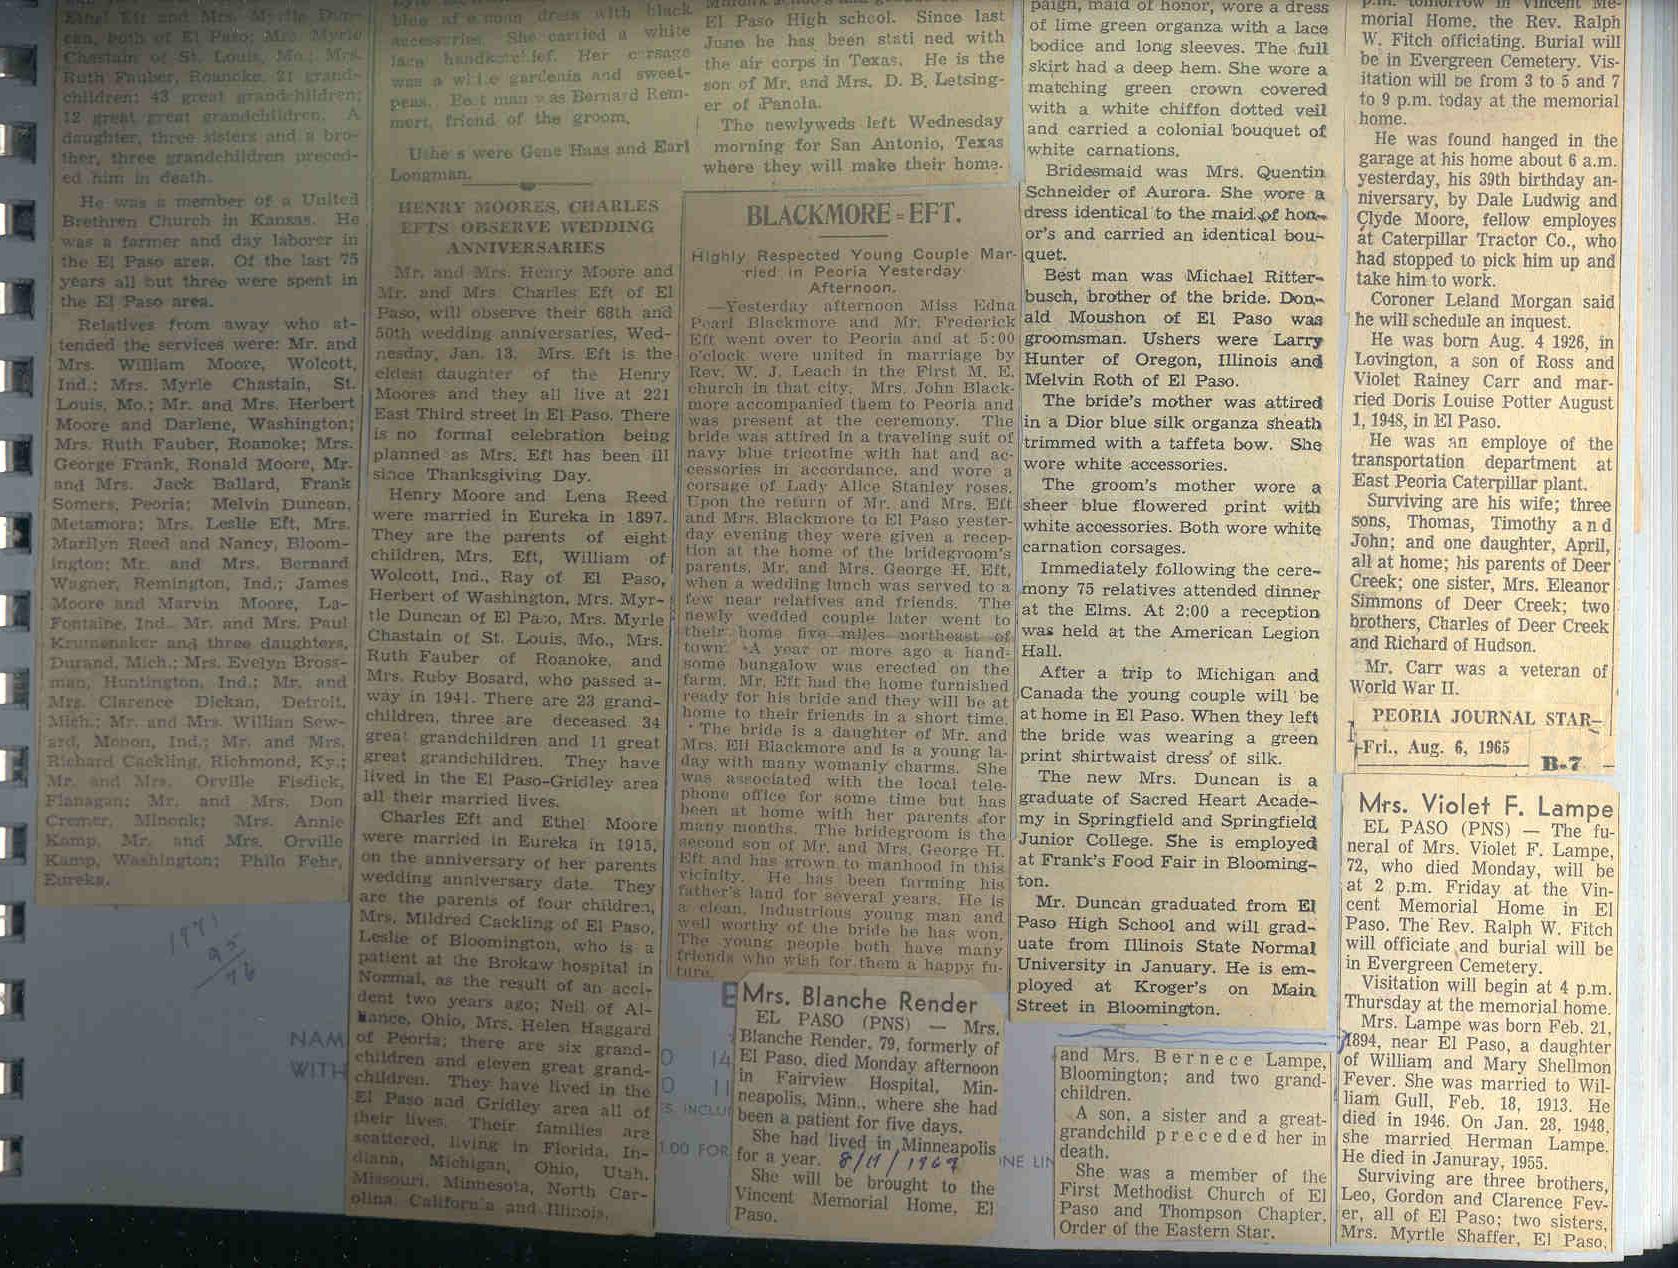 Ethel Eft and Mrs. Myrtle Dun-
can, both of El Paso; Mrs. Myrle
Chastain of St. Louis, Mo.; Mrs.
Ruth Fauber, Roanoke, 21 grand-
children; 43 great grandchildren;
12 great great grandchildren. A
daughter, three sisters and a bro-
ther, three grandchildren preced-
ed him in death.
He was a member of a United
Brethren Church in Kansas. He
was a farmer and day laborer in
the El Paso area. Of the last 75
years all but three were spent in
the El Paso area.
Relatives from away who at-
tended the services were: Mr. and
Mrs. William Moore, Wolcott,
Ind.; Mrs. Myrle Chastain, St.
Louis, Mo.; Mr. and Mrs. Herbert
Moore and Darlene, Washington;
Mrs. Ruth Fauber, Roanoke; Mrs.
George Frank, Ronald Moore, Mr.
and Mrs. Jack Ballard, Frank
Somers, Peoria; Melvin Duncan,
Metamora; Mrs. Leslie Eft, Mrs.
Marilyn Reed and Nancy, Bloom-
ington; Mr. and Mrs. Bernard
Wagner, Remington, Ind.; James
Moore and Marvin Moore, La-
Fontaine, Ind. Mr. and Mrs. Paul
Krumenaker and three daughters,
Durand, Mich.; Mrs. Evelyn Bross-
man, Huntington, Ind.; Mr. and
Mrs. Clarence Dickan, Detroit,
Mich.; Mr. and Mrs. Willian Sew-
ard, Monon, Ind.; Mr. and Mrs.
Richard Cackling, Richmond, Ky.;
Mr. and Mrs. Orville Fisdick,
Flanagan; Mr. and Mrs. Don
Cremer, Minonk; Mrs. Annie
Kamp, Mr. and Mrs. Orville
Kamp, Washington; Philo Fehr,
Eureka.
1971
95
76
NAM
WITH
blue afternoon dress with black
accessories. She carried a white
lace handkerchief. Her corsage
was a white gardenia and sweet-
peas. Best man was Bernard Rem-
mert, friend of the groom.
Ushe s were Gene Haas and Earl
Longman.
HENRY MOORES, CHARLES
EFTS OBSERVE WEDDING
ANNIVERSARIES
Mr. and Mrs. Henry Moore and
Mr. and Mrs. Charles Eft of El
Paso, will observe their 68th and
50th wedding anniversaries, Wed-
nesday, Jan. 13. Mrs. Eft is the
eldest daughter of the Henry
Moores and they all live at 221
East Third street in El Paso. There
is no formal celebration being
planned as Mrs. Eft has been ill
since Thanksgiving Day.
Henry Moore and Lena Reed
were married in Eureka in 1897.
They are the parents of eight
children, Mrs. Eft, William of
Wolcott, Ind., Ray of El Paso,
Herbert of Washington, Mrs. Myr-
tle Duncan of El Paso, Mrs. Myrle
Chastain of St. Louis, Mo., Mrs.
Ruth Fauber of Roanoke, and
Mrs. Ruby Bosard, who passed a-
way in 1941. There are 23 grand-
children, three are deceased 34
great grandchildren and 11 great
great grandchildren. They have
lived in the El Paso-Gridley area
all their married lives.
Charles Eft and Ethel Moore
were married in Eureka in 1915,
on the anniversary of her parents
wedding anniversary date. They
are the parents of four children,
Mrs. Mildred Cackling of El Paso,
Leslie of Bloomington, who is a
patient at the Brokaw hospital in
Normal, as the result of an acci-
dent two years ago; Neil of Al-
liance, Ohio, Mrs. Helen Haggard
of Peoria; there are six grand-
children and eleven great grand-
children. They have lived in the
El Paso and Gridley area all of
their lives. Their families are
scattered, living in Florida, In-
diana, Michigan, Ohio, Utah,
Missouri, Minnesota, North Car-
olina, California and Illinois.
El Paso High school. Since last
June he has been stati ned with
the air corps in Texas. He is the
son of Mr. and Mrs. D. B. Letsing-
er of Panola.
The newlyweds left Wednesday
morning for San Antonio, Texas
where they will make their home.
BLACKMORE=EFT.
Highly Respected Young Couple Mar-
ried in Peoria Yesterday
Afternoon.
—Yesterday afternoon Miss Edna
Pearl Blackmore and Mr. Frederick
Eft went over to Peoria and at 5:00
o'clock were united in marriage by
Rev. W. J. Leach in the First M. E.
church in that city. Mrs. John Black-
more accompanied them to Peoria and
was present at the ceremony. The
bride was attired in a traveling suit of
navy blue tricotine with hat and ac-
cessories in accordance, and wore a
corsage of Lady Alice Stanley roses.
Upon the return of Mr. and Mrs. Eft
and Mrs. Blackmore to El Paso yester-
day evening they were given a recep-
tion at the home of the bridegroom's
parents, Mr. and Mrs. George H. Eft,
when a wedding lunch was served to a
few near relatives and friends. The
newly wedded couple later went to
their home five miles northeast of
town. A year or more ago a hand-
some bungalow was erected on the
farm. Mr. Eft had the home furnished
ready for his bride and they will be at
home to their friends in a short time.
The bride is a daughter of Mr. and
Mrs. Eli Blackmore and is a young la-
day with many womanly charms. She
was associated with the local tele-
phone office for some time but has
been at home with her parents for
many months. The bridegroom is the
second son of Mr. and Mrs. George H.
Eft and has grown to manhood in this
vicinity. He has been farming his
father's land for several years. He is
a clean, industrious young man and
well worthy of the bride he has won.
The young people both have many
friends who wish for them a happy fu-
ture.
0 14
0 11
S. INCLU
1.00 FOR
NE LIN
Mrs. Blanche Render
EL PASO (PNS) — Mrs.
Blanche Render, 79, formerly of
El Paso, died Monday afternoon
in Fairview Hospital, Min-
neapolis, Minn., where she had
been a patient for five days.
She had lived in Minneapolis
for a year. 8/11/1969
She will be brought to the
Vincent Memorial Home, El
Paso.
paign, maid of honor, wore a dress
of lime green organza with a lace
bodice and long sleeves. The full
skirt had a deep hem. She wore a
matching green crown covered
with a white chiffon dotted veil
and carried a colonial bouquet of
white carnations.
Bridesmaid was Mrs. Quentin
Schneider of Aurora. She wore a
dress identical to the maid of hon-
or's and carried an identical bou-
quet.
Best man was Michael Ritter-
busch, brother of the bride. Don-
ald Moushon of El Paso was
groomsman. Ushers were Larry
Hunter of Oregon, Illinois and
Melvin Roth of El Paso.
The bride's mother was attired
in a Dior blue silk organza sheath
trimmed with a taffeta bow. She
wore white accessories.
The groom's mother wore a
sheer blue flowered print with
white accessories. Both wore white
carnation corsages.
Immediately following the cere-
mony 75 relatives attended dinner
at the Elms. At 2:00 a reception
was held at the American Legion
Hall.
After a trip to Michigan and
Canada the young couple will be
at home in El Paso. When they left
the bride was wearing a green
print shirtwaist dress of silk.
The new Mrs. Duncan is a
graduate of Sacred Heart Acade-
my in Springfield and Springfield
Junior College. She is employed
at Frank's Food Fair in Blooming-
ton.
Mr. Duncan graduated from El
Paso High School and will grad-
uate from Illinois State Normal
University in January. He is em-
ployed at Kroger's on Main
Street in Bloomington.
and Mrs. Bernece Lampe,
Bloomington; and two grand-
children.
A son, a sister and a great-
grandchild preceded her in
death.
She was a member of the
First Methodist Church of El
Paso and Thompson Chapter,
Order of the Eastern Star.
p.m. tomorrow in Vincent Me-
morial Home, the Rev. Ralph
W. Fitch officiating. Burial will
be in Evergreen Cemetery. Vis-
itation will be from 3 to 5 and 7
to 9 p.m. today at the memorial
home.
He was found hanged in the
garage at his home about 6 a.m.
yesterday, his 39th birthday an-
niversary, by Dale Ludwig and
Clyde Moore, fellow employes
at Caterpillar Tractor Co., who
had stopped to pick him up and
take him to work.
Coroner Leland Morgan said
he will schedule an inquest.
He was born Aug. 4 1926, in
Lovington, a son of Ross and
Violet Rainey Carr and mar-
ried Doris Louise Potter August
1, 1948, in El Paso.
He was an employe of the
transportation department at
East Peoria Caterpillar plant.
Surviving are his wife; three
sons, Thomas, Timothy and
John; and one daughter, April,
all at home; his parents of Deer
Creek; one sister, Mrs. Eleanor
Simmons of Deer Creek; two
brothers, Charles of Deer Creek
and Richard of Hudson.
Mr. Carr was a veteran of
World War II.
PEORIA JOURNAL STAR—
Fri., Aug. 6, 1965
B-7
Mrs. Violet F. Lampe
EL PASO (PNS) — The fu-
neral of Mrs. Violet F. Lampe,
72, who died Monday, will be
at 2 p.m. Friday at the Vin-
cent Memorial Home in El
Paso. The Rev. Ralph W. Fitch
will officiate and burial will be
in Evergreen Cemetery.
Visitation will begin at 4 p.m.
Thursday at the memorial home.
Mrs. Lampe was born Feb. 21,
1894, near El Paso, a daughter
of William and Mary Shellmon
Fever. She was married to Wil-
liam Gull, Feb. 18, 1913. He
died in 1946. On Jan. 28, 1948,
she married Herman Lampe.
He died in Januray, 1955.
Surviving are three brothers,
Leo, Gordon and Clarence Fev-
er, all of El Paso; two sisters,
Mrs. Myrtle Shaffer, El Paso,